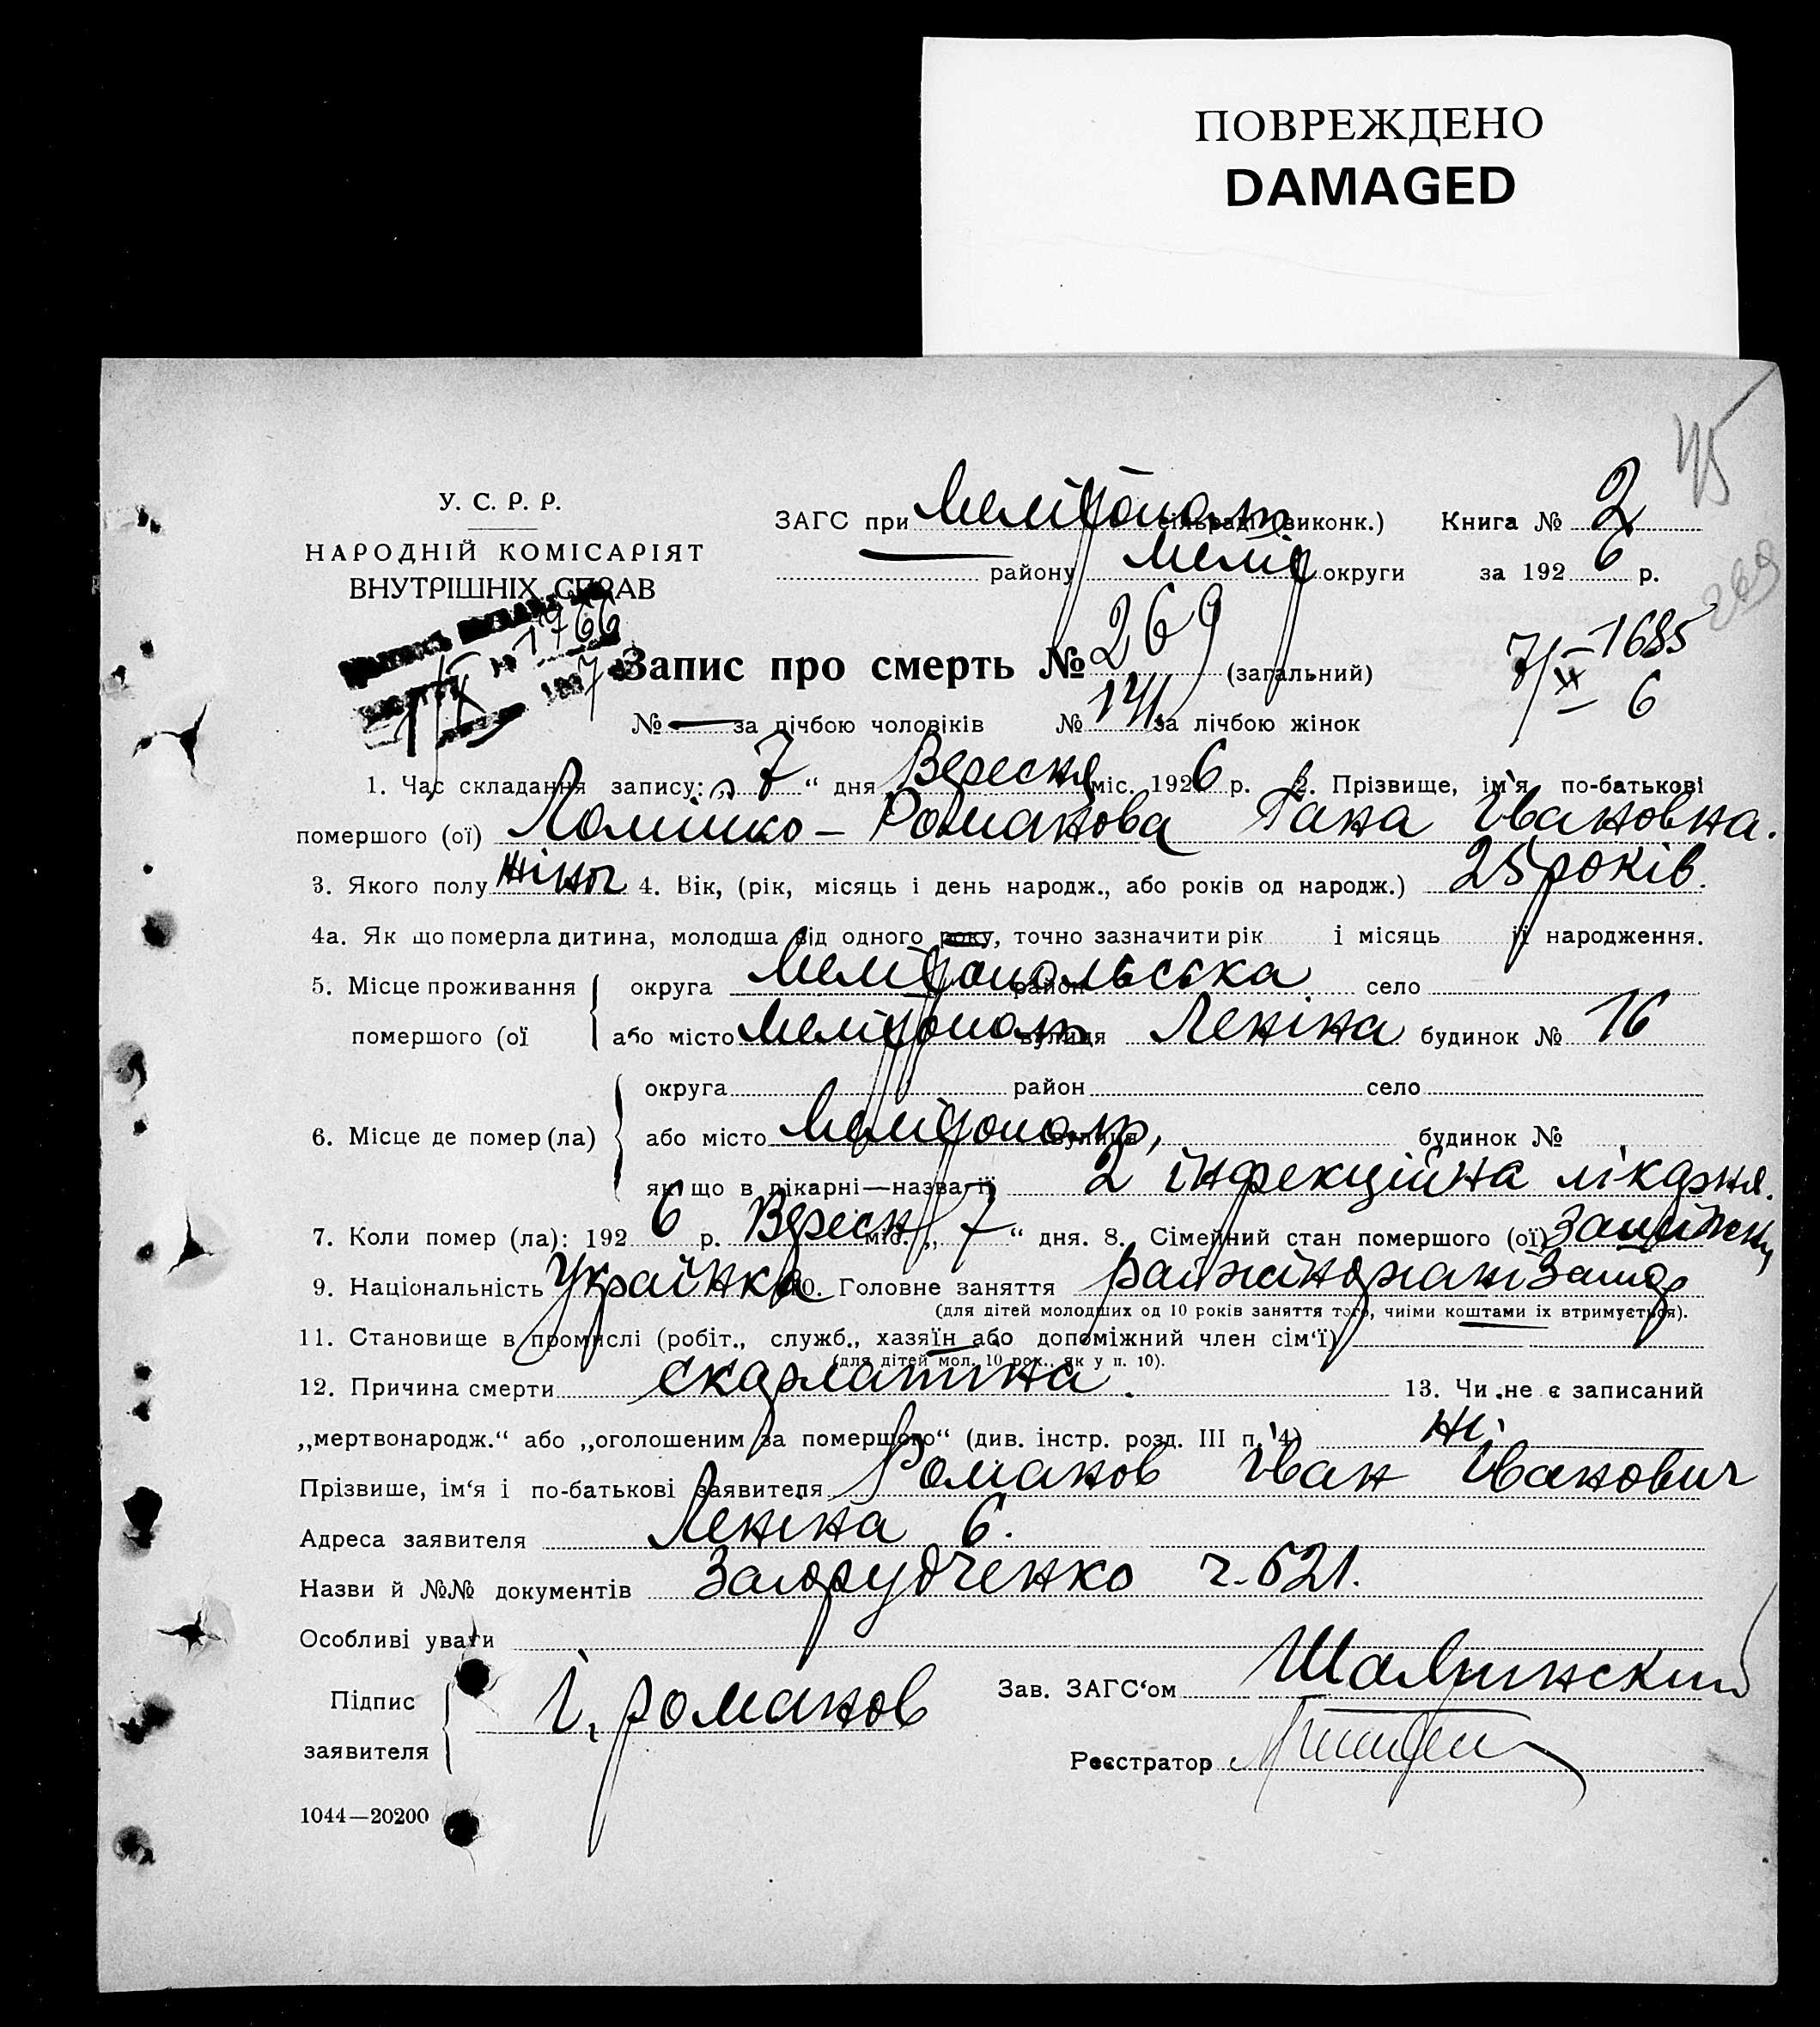 ПОВРЕЖДЕНО
DAMAGED
45
У. С. Р. Р.
НАРОДНІЙ КОМІСАРІЯТ
ВНУТРІШНІХ СПРАВ
ЗАГС при Мелітополь сільраді (виконк.) Книга № 2
району Меліт округи за 1926 р.
269
1766
Запис про смерть № 269 (загальний)
7/IX–1685
6
№ — за лічбою чоловіків № 141 за лічбою жінок
1. Час складання запису: „ 7 “ дня Вересня міс. 1926 р. 2. Прізвище, ім‘я по-батькові
помершого (ої) Ломійко – Романова Гана Івановна.
3. Якого полу жіноч 4. Вік, (рік, місяць і день народж., або років од народж.) 25 років.
4а. Як що померла дитина, молодша від одного року, точно зазначити рік і місяць її народження.
5. Місце проживання округа Мелітопольська район село
помершого (ої або місто Мелітополь вулиця Леніна будинок № 16
округа район село
6. Місце де помер (ла) або місто Мелітополь, вулиця будинок №
як що в лікарні—назва її 2 інфекційна лікарня.
7. Коли помер (ла): 1926 р. Вересн міс. „ 7 “ дня. 8. Сімейний стан помершого (ої) Заміжня
9. Національність Українка 10. Головне заняття райжінорганізатор
(для дітей молодших од 10 років заняття того, чиїми коштами їх втримується).
11. Становище в промислі (робіт., служб., хазяїн або допоміжний член сім‘ї)
(для дітей мол. 10 рок., як у п. 10).
12. Причина смерти скарлатина. 13. Чи не є записаний
„мертвонародж.“ або „оголошеним за помершого“ (див. інстр. розд. III п. 4) Ні.
Прізвише, ім‘я і по-батькові заявителя Романов Іван Іванович
Адреса заявителя Леніна 6.
Назви й №№ документів Загорудченко ч. 621.
Особливі уваги
Підпис
заявителя
І. Романов
Зав. ЗАГС‘ом
Реєстратор
1044—20200